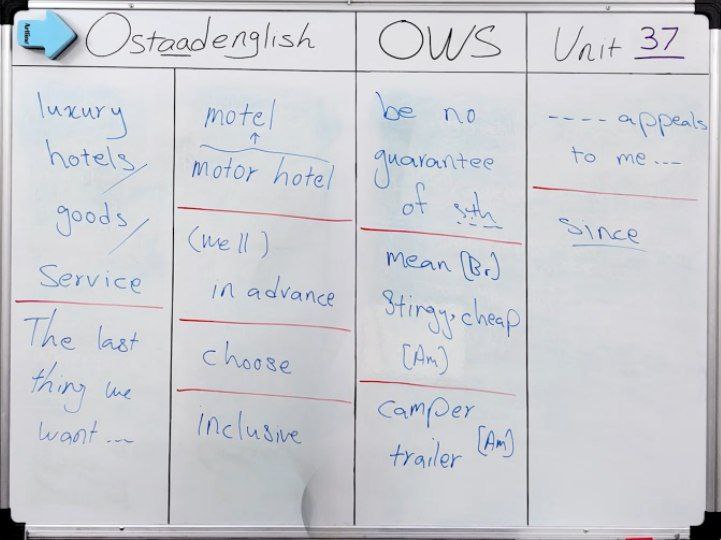 Ostaadenglish
OWS
Unit 37
luxury
hotels/
goods/
Service
The last
thing we
want ---
motel
↑
motor hotel
(well)
in advance
choose
inclusive
be no
guarantee
of sth
mean [Br]
Stingy, cheap
[Am]
camper
trailer [Am]
---- appeals
to me ---
Since